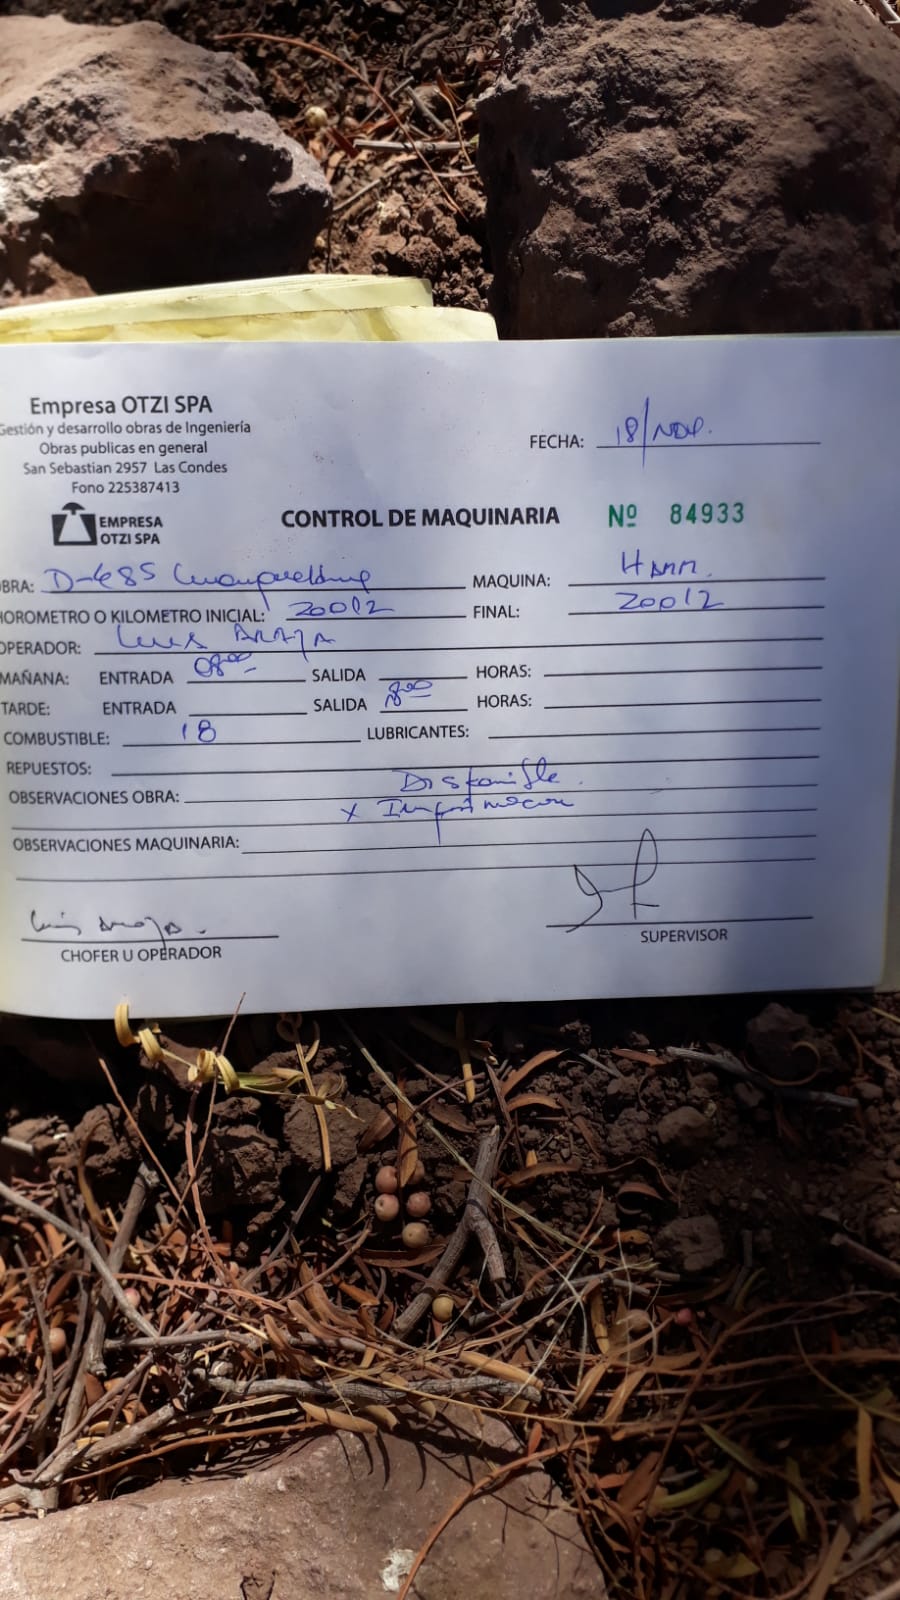 Empresa OTZI SPA
Gestión y desarrollo obras de Ingeniería
Obras publicas en general
San Sebastian 2957 Las Condes
Fono 225387413
EMPRESA
OTZI SPA
FECHA: 18/Nov.
CONTROL DE MAQUINARIA Nº 84933
OBRA: D-485 MAQUINA: HAMM.
HOROMETRO O KILOMETRO INICIAL: 20012 FINAL: 20012
OPERADOR: Luis ARAYA
MAÑANA: ENTRADA 08:00 SALIDA HORAS:
TARDE: ENTRADA SALIDA 18:00 HORAS:
COMBUSTIBLE: 18 LUBRICANTES:
REPUESTOS:
OBSERVACIONES OBRA: Disponible.
x
OBSERVACIONES MAQUINARIA:
Luis Araya.
CHOFER U OPERADOR
SUPERVISOR